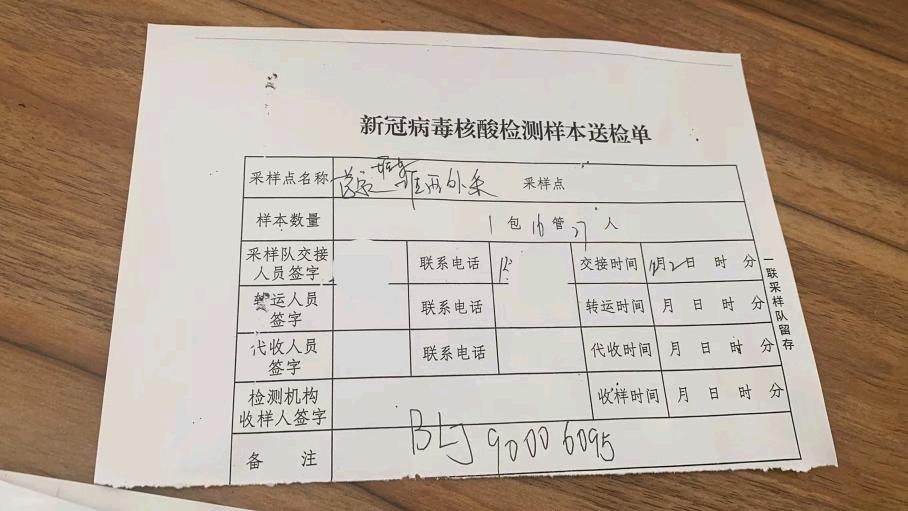 新冠病毒核酸检测样本送检单
采样点名称 采样点
样本数量 1 包 16 管 27 人
采样队交接人员签字 联系电话 交接时间 月2日 时 分
转运人员签字 联系电话 转运时间 月 日 时 分
代收人员签字 联系电话 代收时间 月 日 时 分
检测机构收样人签字 收样时间 月 日 时 分
备 注 BLJ 90006095
一联采样队留存